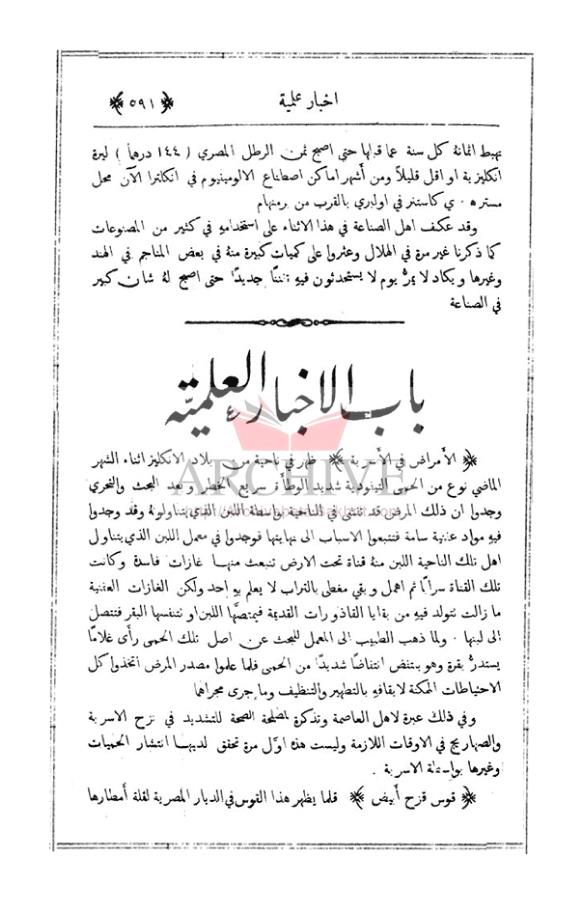 اخبار علمية ﴿٥٩١﴾
تهبط اثمانهُ كل سنة عما قبلها حتى اصبح ثمن الرطل المصري ( ١٤٤ درهماً ) ليرة
انكليزية او اقل قليلاً ومن أشهر اماكن اصطناع الالومينيوم في انكلترا الآن محل
كاستنر في اولبري بالقرب من برمنهام
وقد عكف اهل الصناعة في هذا الاثناء على استخدامهِ في كثير من المصنوعات
كما ذكرنا غير مرة في الهلال وعثروا على كميات كبيرة منهُ في بعض المناجم في الهند
وغيرها ويكاد لا يمرُّ يوم لا يستحدثون فيهِ تفننًا جديدًا حتى اصبح لهُ شان كبير
في الصناعة
باب الاخبار العلميَّة
﴿ الأمراض في الأسربة ﴾ ظهر في ناحية من بلاد الانكليز اثناء الشهر
الماضي نوع من الحمى التيفودية شديد الوطأة سريع الخطر وبعد البحث والتحري
وجدوا ان ذلك المرض قد تفشى في الناحية بواسطة اللبن الذي يتناولونهُ وقد وجدوا
فيهِ مواد عفنية سامة فتتبعوا الاسباب الى نهايتها فوجدوا في معمل اللبن الذي يتناول
اهل تلك الناحية اللبن منهُ قناة تحت الارض تنبعث منهـا غازات فاسدة وكانت
تلك القناة سرابًا ثم اهمل وبقي مغطى بالتراب لا يعلم بهِ احد ولكن الغازات العفنية
ما زالت تتولد فيهِ من بقايا القاذورات القديمة فيمتصُّها اللبن او تتنفسها البقر فتتصل
الى لبنها ٠ ولما ذهب الطبيب الى المعمل للبحث عن اصل تلك الحمى رأى غلامًا
يستدرُّ بقرة وهو ينتفض انتفاضًا شديدًا من الحمى فلما علموا مصدر المرض اتخذوا كل
الاحتياطات الممكنة لايقافهِ بالتطهير والتنظيف وما جرى مجراهما
وفي ذلك عبرة لاهل العاصمة وتذكرة لمصلحة الصحة للتشديد في نزح الاسربة
والصهاريج في الاوقات اللازمة وليست هذه اوَّل مرة تحقق لديهـا انتشار الحميات
وغيرها بواسطة الاسربة .
﴿ قوس قزح أبيض ﴾ قلما يظهر هذا القوس في الديار المصرية لقلة أمطارها
ARCHIVE